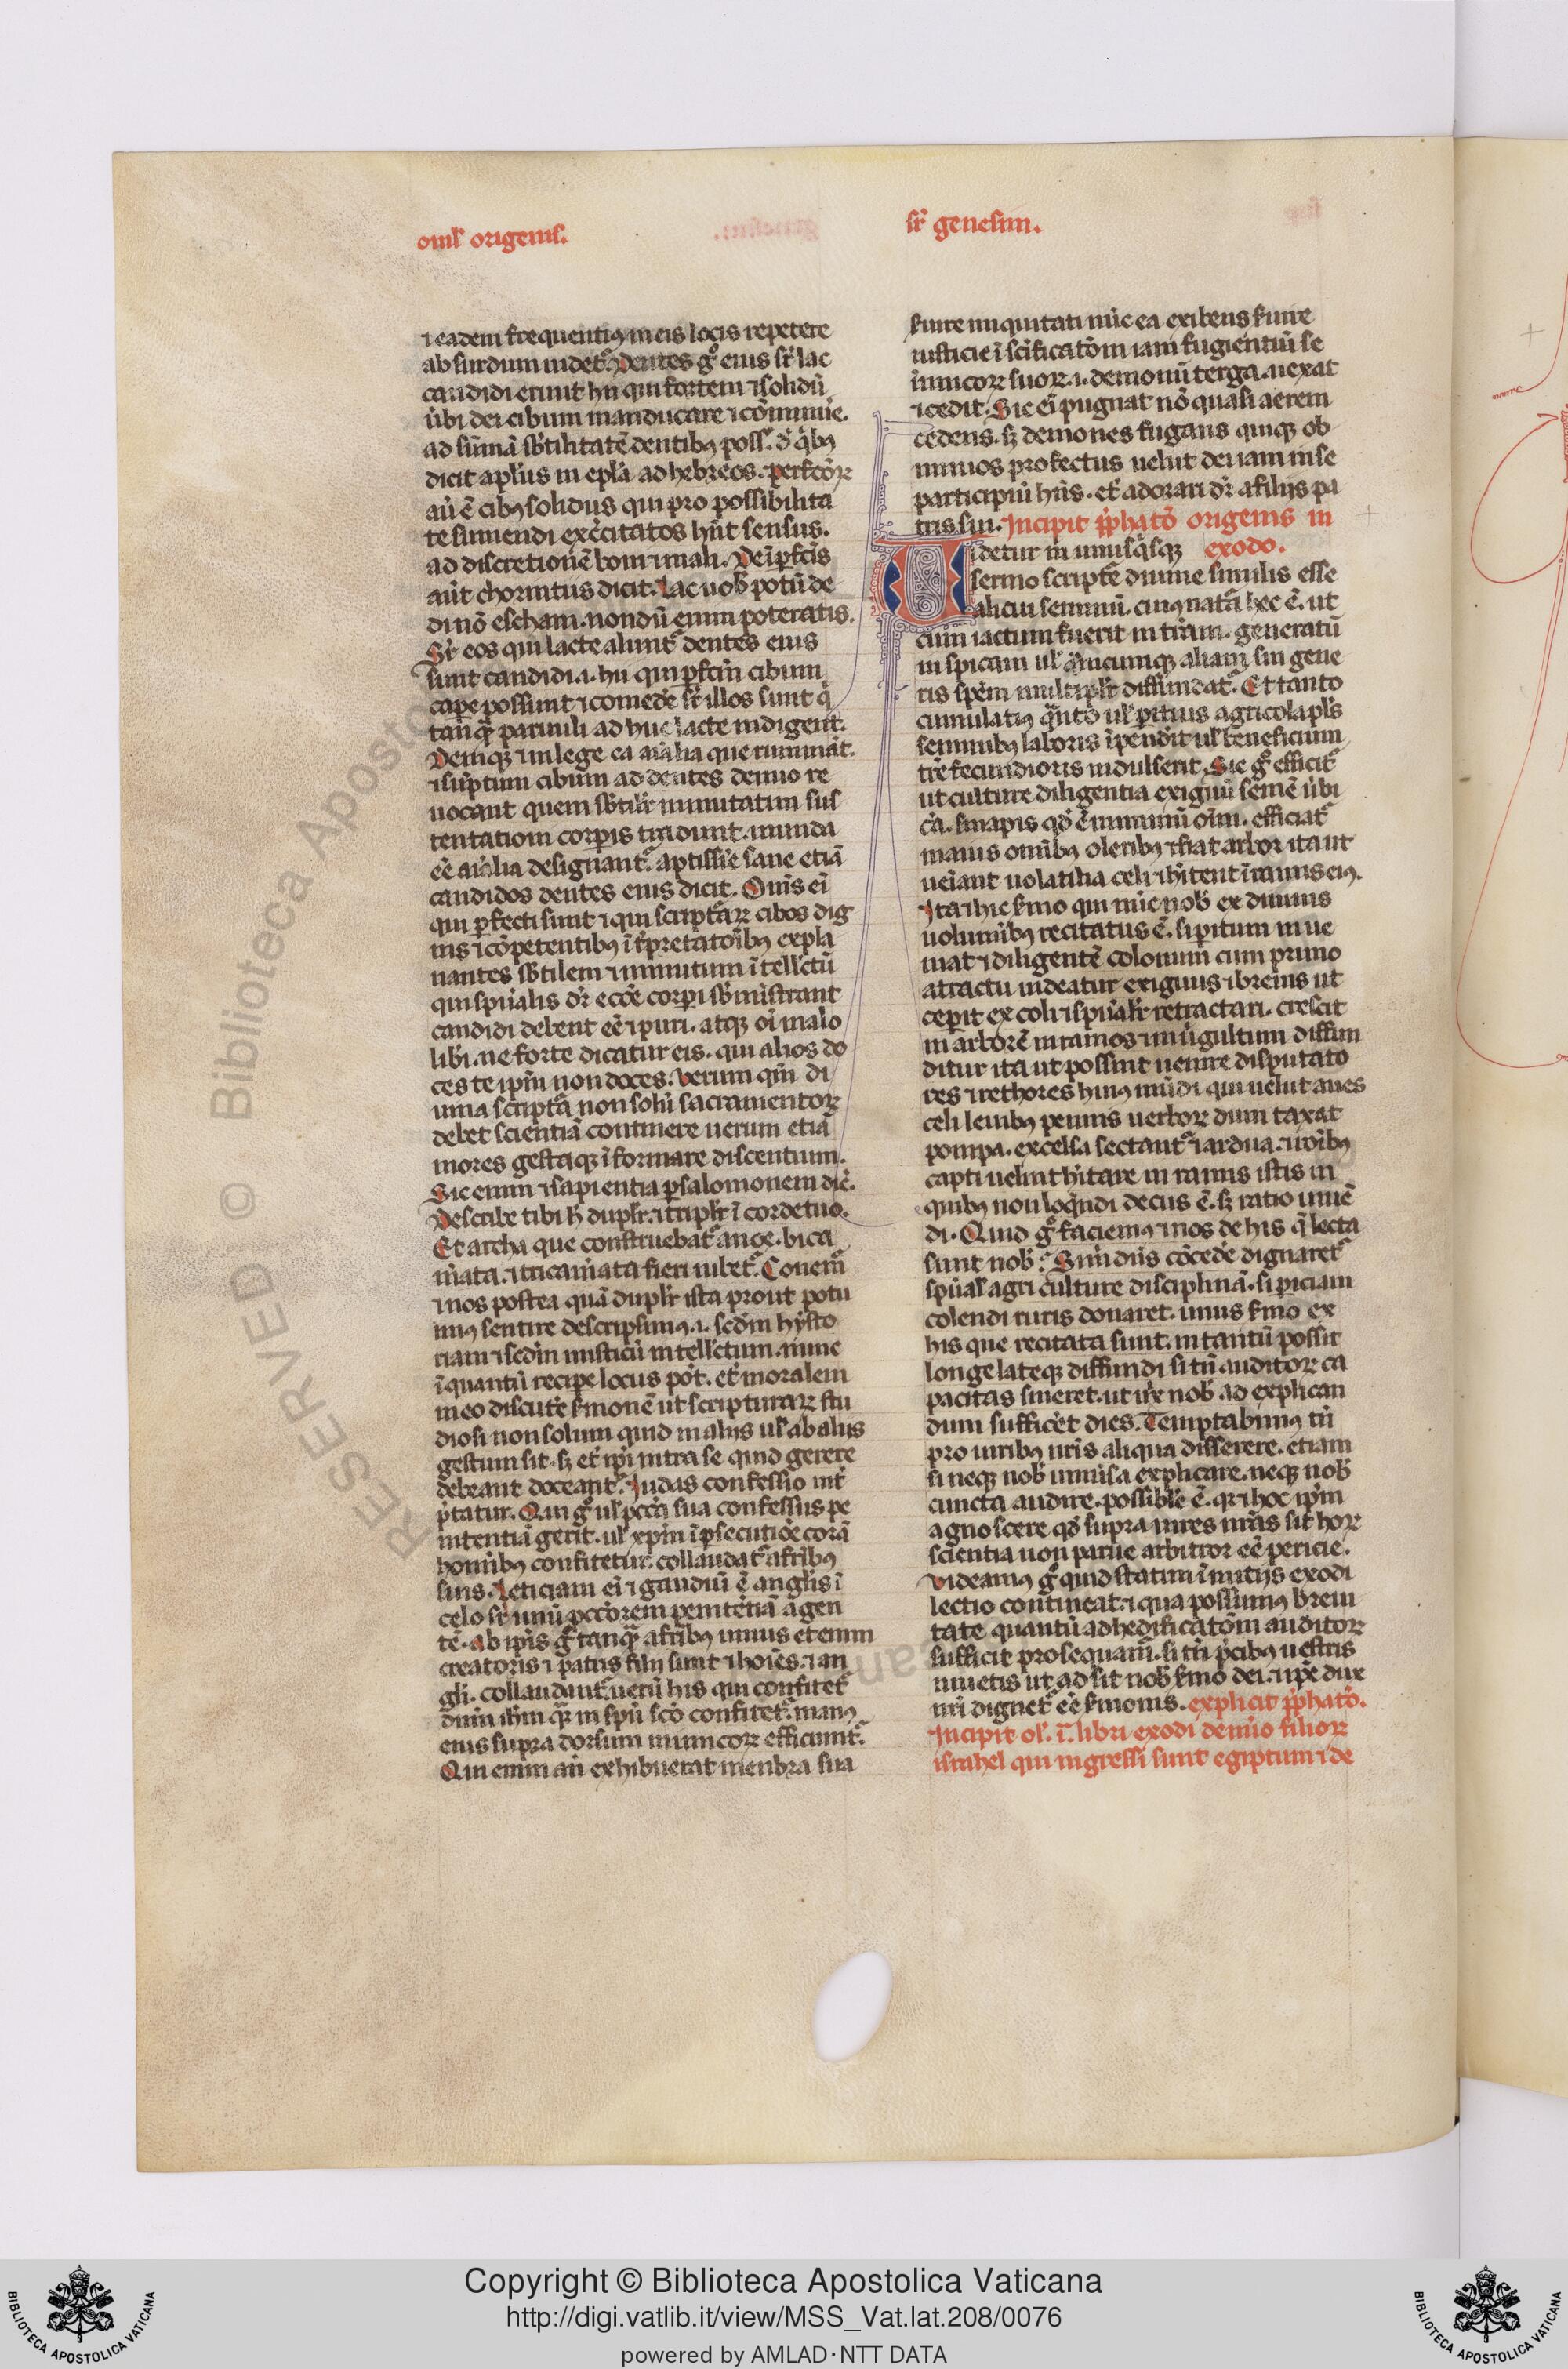 oml' origenis.
sr̄ genesim.
⁊ eadem frequentiꝰ in eis locis repetere
absurdum uidet᷑. Dentes gͦ eius sr̄ lac
candidi erunt hii qui fortem ⁊ solidū
ūbi dei cibum manducare ⁊ cōminūe.
ad sūmā sb̄tilitatē dentibꝰ poss̄. d̄ q̄bꝰ
dicit apl̄us in epl̄a ad hebreos. perfc̄oꝝ
aū ē cibꝰ solidus qui pro possibilita
te sumendi exc̄citatos hn̄t sensus.
ad discretionē boni ⁊ mali. De īꝑfc̄is
aūt chorintus dicit. Lac uob̄ potū de
di nō escham. nondū enim poteratis.
Sr̄ eos qui lacte alunt᷑ dentes eius
sunt candidi .i. hii qui ꝑfc̄m cibum
cape possunt ⁊ comede sr̄ illos sunt q̄
tanqͣ paruuli adhuc lacte indigent.
Deniqꝫ ⁊ in lege ea aīalia que rumināt.
⁊ sūptum cibum ad dentes denuo re
uocant quem sb̄tilit̄ minutatim sus
tentationi corpis tradunt. munda
eē aīalia designant᷑. aptissīe sane etiā
candidos dentes eius dicit. Omīs ei
qui ꝑfecti sunt ⁊ qui scriptᷓaꝝ cibos dig
nis ⁊ cōpetentibꝰ īt̄pretatoībꝰ expla
nantes sb̄tilem ⁊ minutum ītell̄ctū
qui spūalis dr̄ ecc̄e corpi sb̄ministrant
candidi debent eē ⁊ puri. atqꝫ oī malo
libi. ne forte dicatur eis. qui alios do
ces te ip̄m non doces. Verum qm̄ di
uina scriptᷓa non solū sacramentoꝝ
debet scientiā continere uerum etiā
mores gestaqꝫ īformare discentium.
Sic enim ⁊ sapientia ꝑ salomonem dic̄.
Describe tibi h̄ duplr̄. ⁊ triplr̄ ī corde tuo.
Et archa que construebat᷑ a noe. bica
m̄ata. ⁊ tricam̄ata fieri iubet᷑. Conem᷑
⁊ nos postea quā duplr̄ ista prout potu
imꝰ sentire descripsimꝰ .i. scdm hysto
riam ⁊ scdm misticū intell̄ctum. nunc
īquantū recipe locus pōt. et moralem
ī eo discute s̄monē ut scripturaꝝ stu
diosi non solum quid in aliis ul̄ ab aliis
gestum sit. sꝫ et ip̄i intra se quid gerere
debeant doceant᷑. Judas confessio int̄
p̄tatur. Qui gͦ ul̄ pcc̄a sua confessus pe
nitentiā gerit. ul̄ xp̄m ī ꝑsecutiōe corā
hominibꝰ confitetur collaudat᷑ a fr̄ibꝰ
suis. Leticiam ei ⁊ gaudiū ē angl̄is ī
celo sr̄ unū pcc̄orem penitētiā agen
tē. ab ip̄is gͦ tanqͣ a fr̄ibꝰ unius etenim
creatoris ⁊ patris filii sunt ⁊ hoīes. ⁊ an
gl̄i. collaudant᷑. uerū his qui confitet᷑
dn̄m ih̄m qꝛ in spū scō confitet᷑. manꝰ
eius supra dorsum inimicoꝝ efficiunt᷑.
Qui enim an̄ exhibuerat menbra sua
s̄uire iniquitati nūc ea exibens s̄uire
iusticie ī sc̄ificatōm iam fugientiū se
inimicoꝝ suoꝝ .i. demonū terga. uexat
⁊ cedit. Sic ei pugnat nō quasi aerem
cedens. sꝫ demones fugans quiqꝫ ob
nimios profectus uelut deū iam in se
participiū hn̄s. et adorari dr̄ a filiis pa
tris sui. Incipit p̄phatō origenis in
exodo.
Videtur m̄ unusq̄sqꝫ
sermo scriptᷓe diuine similis esse
alicui seminū. cuiꝰ natᷓa hec ē. ut
cum iactum fuerit in tr̄am. generatū
in spicam ul̄ q̄mcumqꝫ aliam sui gene
ris spēm multiplr̄ diffundat᷑. Et tanto
cumulatiꝰ qͣnto ul̄ peritus agricola pl̄s
seminibꝰ laboris īpendit ul̄ beneficium
tr̄e fecundioris indulserit. Sic gͦ efficit᷑
ut culture diligentia exiguū semē ūbi
cā. sinapis qd̄ ē minimū oīm. efficiat᷑
maius omībꝰ oleribꝰ ⁊ fiat arbor ita ut
ueniant uolatilia celi ⁊ hītent ī ramis eiꝰ.
Ita ⁊ hic s̄mo qui nūc nob̄ ex diuinis
uoluminibꝰ recitatus ē. si peritum inue
niat ⁊ diligentē colonum cum primo
atractu uideatur exiguus ⁊ breuis ut
ceperit excoli ⁊ spūalit̄ retractari. crescit
in arborē in ramos ⁊ in ūgultum diffun
ditur ita ut possint uenire disputato
res ⁊ rethores huiꝰ mūdi qui uelut aues
celi leuibꝰ pennis uerboꝝ dum taxat
pompa. excelsa sectant᷑ ⁊ ardua. ⁊ rōibꝰ
capti uelint hītare in ramis istis in
quibꝰ non loquēdi decus ē. sꝫ ratio uiuē
di. Quid gͦ faciemꝰ ⁊ nos de his q̄ lecta
sunt nob̄? Si m̄ dn̄s cōcede dignaret᷑
spūal̄ agriculture disciplinā. si piciam
colendi ruris donaret. unus s̄mo ex
his que recitata sunt. in tantū possit
longe lateqꝫ diffundi si tn̄ auditoꝝ ca
pacitas sineret. ut uix nob̄ ad explican
dum sufficēt dies. Temptabimꝰ tn̄
pro uiribꝰ nr̄is aliqua disserere. etiam
si neqꝫ nob̄ uniūsa explicare. neqꝫ nob̄
cuncta audire. possibl̄e ē. qꝛ ⁊ hoc ip̄m
agnoscere qd̄ supra uires nr̄as sit hoꝝ
scientia non parue arbitror eē pericie.
Videamꝰ gͦ quid statim ī initiis exodi
lectio contineat. ⁊ qua possumꝰ breui
tate quantū ad hedificatōm auditoꝝ
sufficit prosequam᷑. si tn̄ p̄cibꝰ uestris
iuuetis ut adsit nob̄ s̄mo dei. ⁊ ip̄e dux
nr̄i dignet᷑ eē s̄monis. explicit p̄phatō.
Incipit ol̄. ī. libri exodi de nuīo filioꝝ
israhel qui ingressi sunt egiptum ⁊ de
RESERVED © Biblioteca Aposto
Copyright © Biblioteca Apostolica Vaticana
http://digi.vatlib.it/view/MSS_Vat.lat.208/0076
powered by AMLAD·NTT DATA
BIBLIOTECA APOSTOLICA VATICANA
BIBLIOTECA APOSTOLICA VATICANA